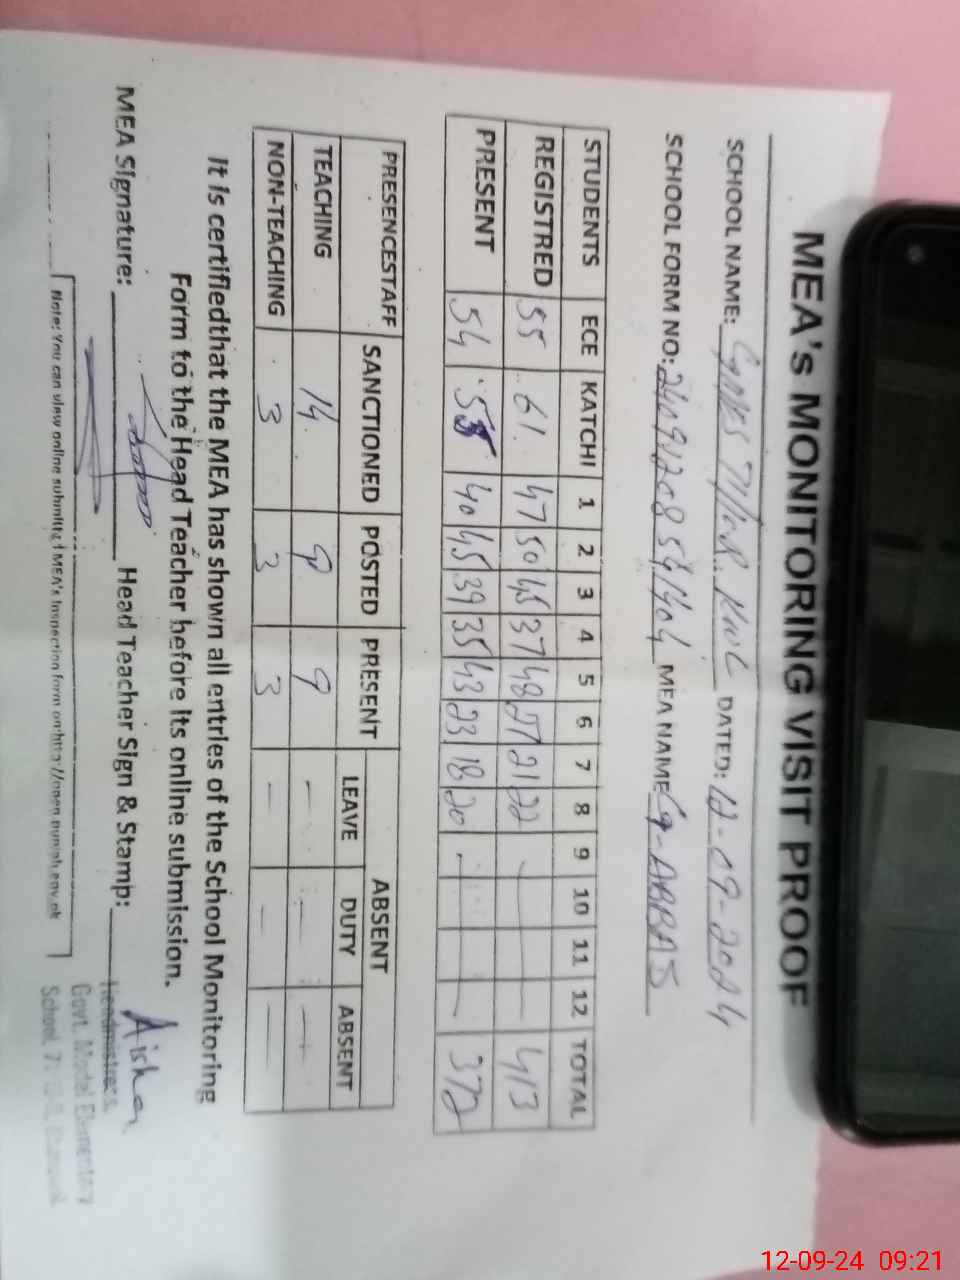 MEA's MONITORING VISIT PROOF
SCHOOL NAME: GMES 71/10R KWL DATED: 12-09-2024
SCHOOL FORM NO: MEA NAME: G-ABBAS
STUDENTS ECE KATCHI 1 2 3 4 5 6 7 8 9 10 11 12 TOTAL
REGISTRED 55 61 47 50 45 37 48 27 21 22 413
PRESENT 54 55 40 45 39 35 43 23 18 20 372
PRESENCESTAFF SANCTIONED POSTED PRESENT ABSENT
LEAVE DUTY ABSENT
TEACHING 14 9 9 - - -
NON-TEACHING 3 3 3 - - -
It is certifiedthat the MEA has shown all entries of the School Monitoring
Form to the Head Teacher before its online submission.
MEA Signature: Head Teacher Sign & Stamp: Aisha
Headmistress,
Govt. Model Elementary
School,
Note: You can view online submitted MEA's Inspection form on:http://open.punjab.gov.pk
12-09-24 09:21